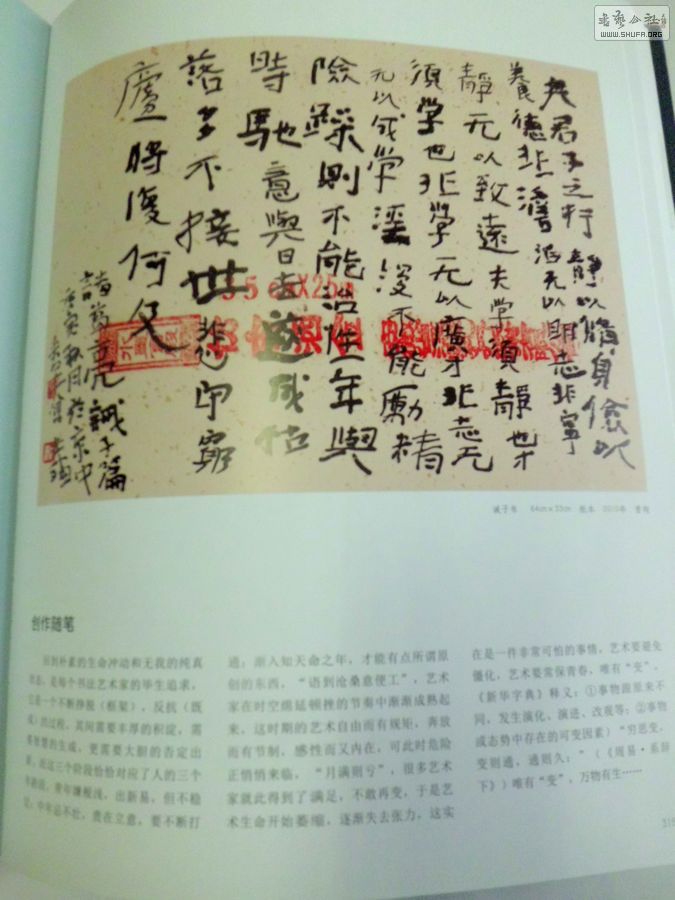 書藝公社
WWW.SHUFA.ORG
夫君子之行靜以脩身儉以
養德非澹泊无以明志非寧
靜无以致遠夫学須靜也才
須学也非学无以廣才非志无
无以成学淫不能勵精
險躁則不能治性年與
時馳意與日去遂成枯
落多不接世悲守窮
廬將復何及
諸葛亮誡子篇
庚寅秋月於京中
诫子书 64cm×33cm 纸本 2010年
创作随笔
回到朴素的生命冲动和无我的纯真
状态，是每个书法艺术家的毕生追求，
它是一个不断挣脱（框架），反抗（既
成）的过程，其间需要丰厚的积淀，需
要智慧的生成，更需要大胆的否定出
新。而这三个阶段恰恰对应了人的三个
年龄段，青年嫌板浅，出新易，但不稳
定；中年忌不壮，贵在立意，要不断打
通；渐入知天命之年，才能有点所谓原
创的东西，“语到沧桑意便工”，艺术
家在时空绵延顿挫的节奏中渐渐成熟起
来。这时期的艺术自由而有规矩，奔放
而有节制，感性而又内在，可此时危险
正悄悄来临，“月满则亏”，很多艺术
家就此得到了满足，不敢再变，于是艺
术生命开始萎缩，逐渐失去张力，这实
在是一件非常可怕的事情，艺术要避免
僵化，艺术要常保青春，唯有“变”。
《新华字典》释义：①事物跟原来不
同，发生演化、演进、改观等；②事物
或态势中存在的可变因素）“穷思变，
变则通，通则久：”（《周易·系辞
下》）唯有“变”，万物有生……